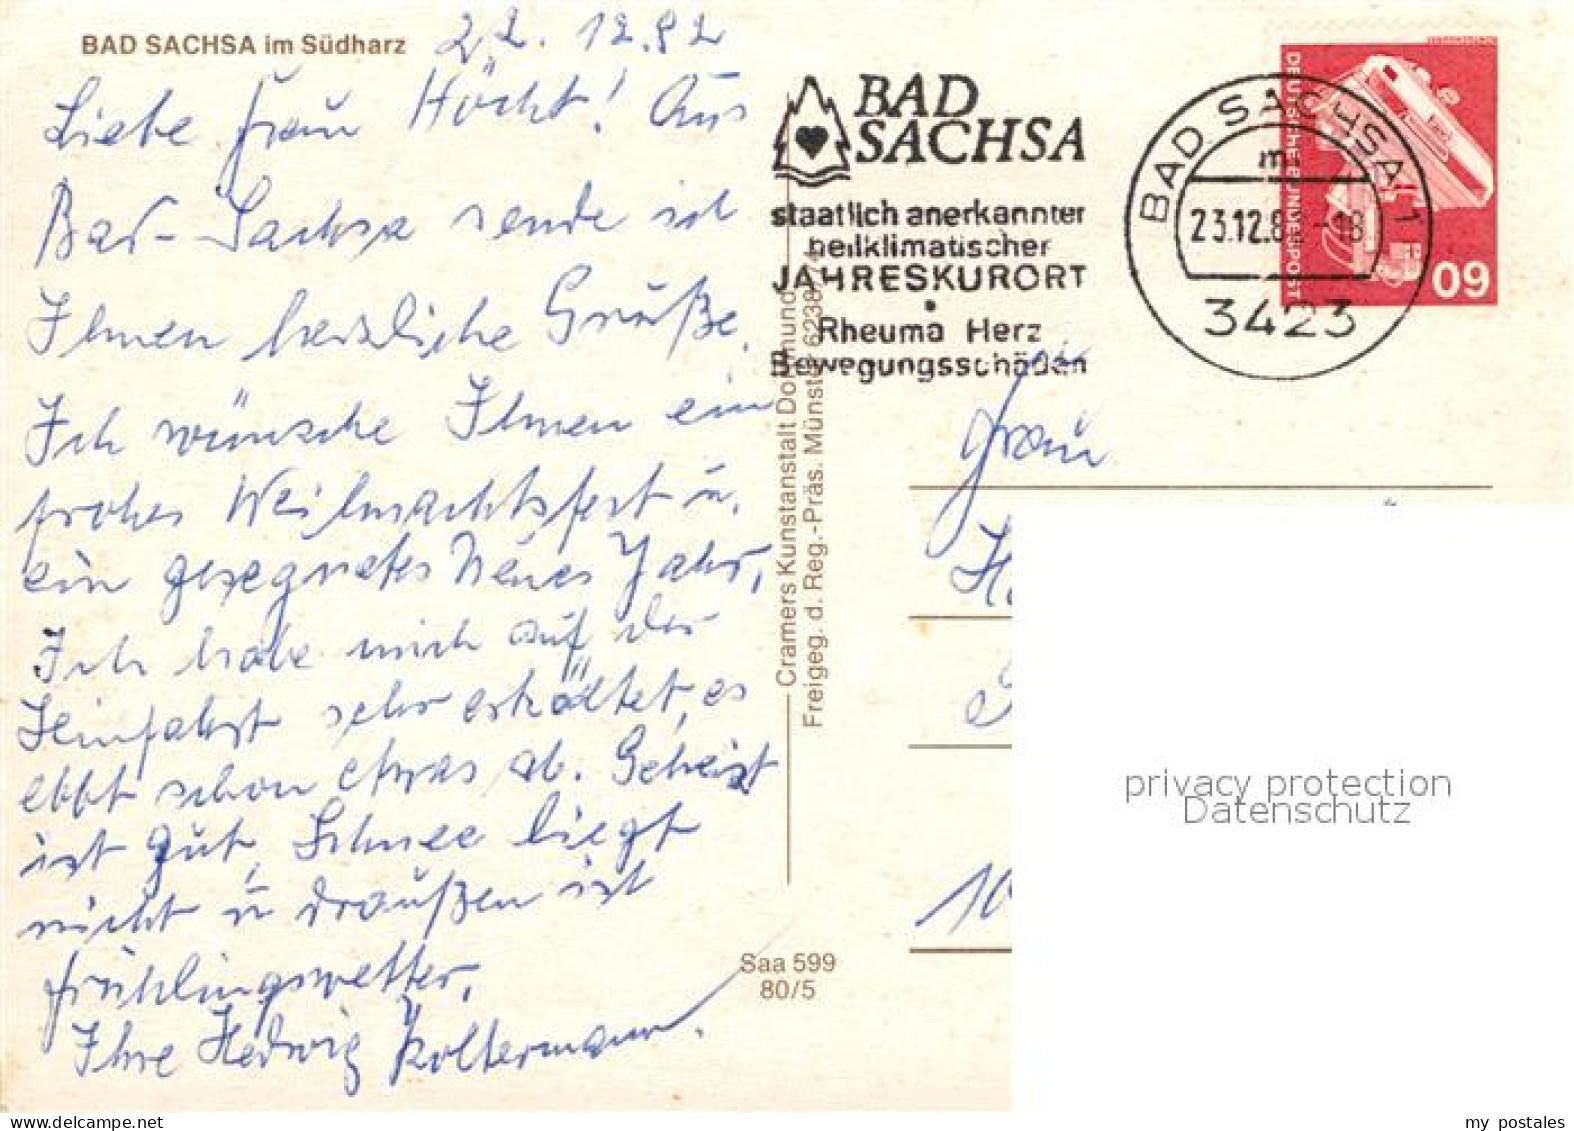 BAD SACHSA im Südharz
22.12.82
Liebe Frau Höcht! Aus
Bad-Sachsa sende ich
Ihnen herzliche Grüße.
Ich wünsche Ihnen ein
frohes Weihnachtsfest u.
ein gesegnetes Neues Jahr,
Ich habe mich auf der
Heinfahrt sehr erkältet, es
ebbt schon etwas ab.
ist gut, Schnee liegt
nicht u draußen ist
frühlingswetter,
Ihre Hedwig Koltermann.
BAD
SACHSA
staatlich anerkannter
heilklimatischer
JAHRESKURORT
•
Rheuma Herz
Bewegungsschäden
BAD SACHSA 1
m
23.12.82-18
3423
DEUTSCHE BUNDESPOST
60
Cramers Kunstanstalt Dortmund
Freigeg. d. Reg.-Präs. Münster 6238/
Saa 599
80/5
Frau
privacy protection
Datenschutz
www.delcampe.net
my_postales